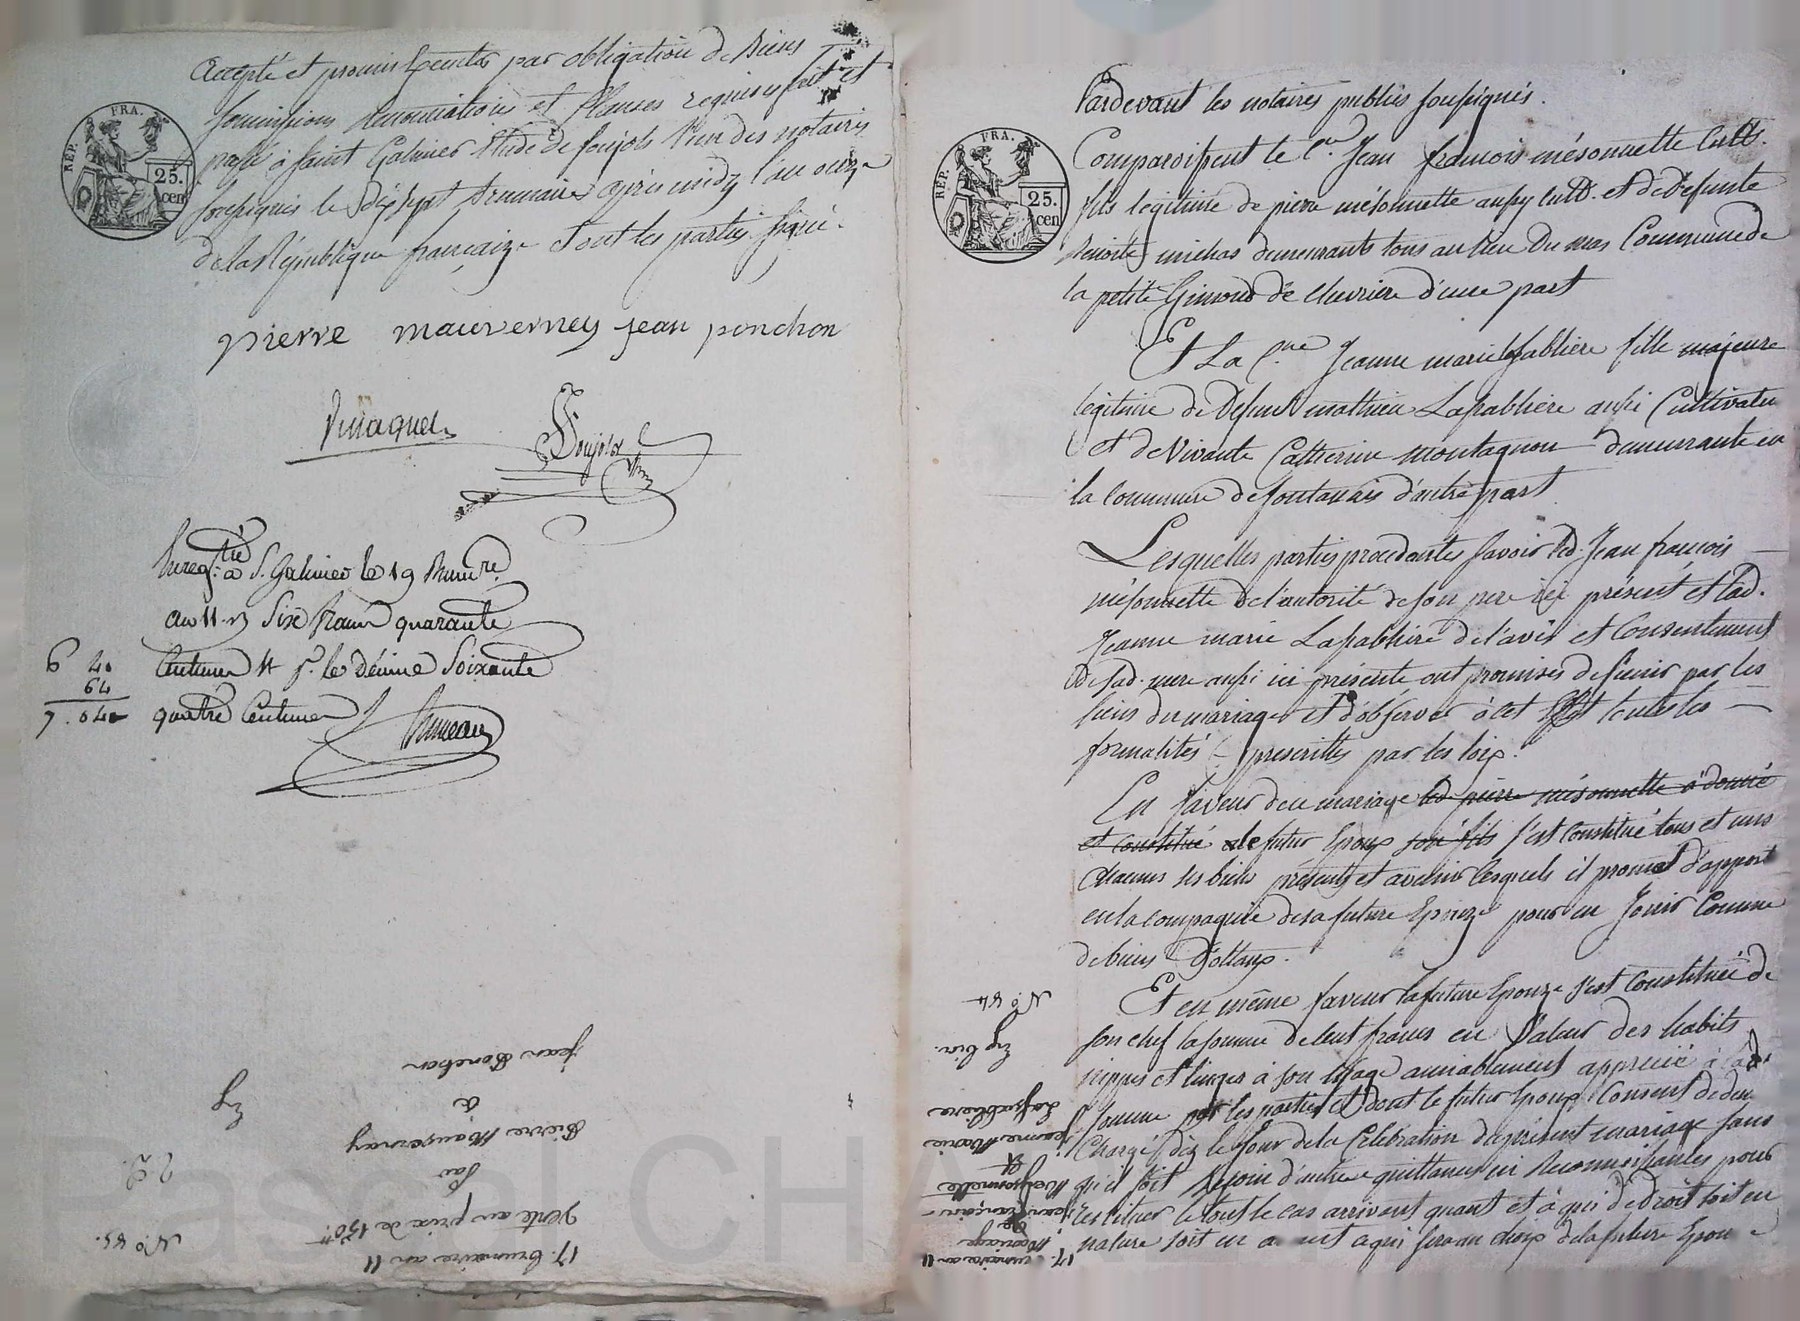 accepté et promis exécuter par obligation de Biens
soumissions renonciations et Clauses requises fait et
passé à Saint Galmier Etude de foujols l'un des notaires
soussignés le dix sept brumaire après midy l'an onze
de la République françaize et ont les parties signé.
REP. FRA.
25.
cen
pierre mauverney jean ponchon
foujols
Enreg.tré à S. Galmier le 19 Brum.re
an 11. Six francs quarante
6 40
64
7. 04
Centimes p.r le décime Soixante
quatre Centimes
Bruneau
17. brumaire an 11
N.o 43.
Vente au prix de 150.tt
Par
Pierre Mauverney
à
Jean Ponchon
Pardevant les notaires publics soussignés.
REP. FRA.
25.
cen
Comparoissent le C.en Jean françois mésonnette Cult.
fils légitime de pierre mésonnette aussy Cult. et de defunte
Benoite michas demeurants tous au lieu Du mas Commune de
la petite Gimond de Chevriere d'une part
Et La C.nne Jeanne marie Lafabliere fille majeure
légitime de Defunt mathieu Lafabliere aussi Cultivateur
et de Vivante Catherine montagnon demeurante en
la Commune de fontanais d'autre part
Lesquelles parties procédantes savoir led. Jean françois
mésonnette de l'autorité de son pere ici présent et lad.
Jeanne marie Lafabliere de l'avis et Consentement
de sad. mere aussi ici présente ont promis de s'unir par les
liens du mariage et d'observer à cet effet toutes les
formalités prescrittes par les loix.
En faveur de ce mariage led pierre mésonnette a donné
et constitué le futur Epoux son fils s'est constitué tous et uns
chacuns ses biens présents et avenir lesquels il promet d'apporter
en la compagnie de sa future Epouze pour en Jouir Comme
de biens Dottaux.
Et en même faveur la future Epouze s'est Constituée de
son chef la somme de Cent francs en Valeur des habits
nippes et linges à son usage amiablement apprecié à lad.
somme par les parties et dont le futur Epoux Consent de
Chargé dès le Jour de la Célébration du présent mariage sans
qu'il soit Besoin d'autre quittance ni Reconnoissance pour
restituer le tout le cas arrivant quant et à qui de droit soit en
nature soit en argent a qui sera au choix de la future Epouze
17. brumaire an 11
Mariage
de
Jean françois
Mesonnette
et
Jeanne Marie
Lafabliere
N.o 44